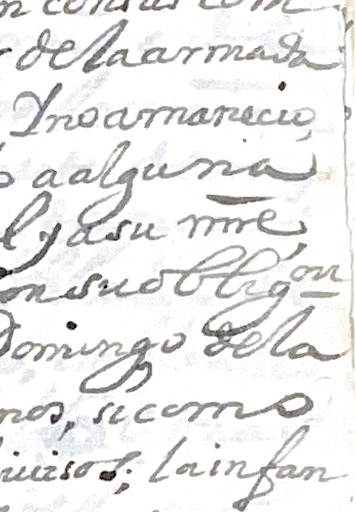 con sus com
de la armada
Ynoamanecio,
a alguna
l, y a su mrē,
on su obblig.on
Domingo de la
nos, si como
iuisos; la infan